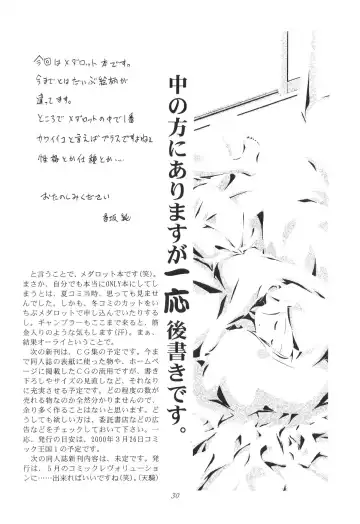 今回はメダロット本です。
今までとはだいぶ絵柄が
違ってます。
ところでメダロットの中で1番
カワイイコと言えばブラスですよねぇ
性格とか仕種とか…
おたのしみください
中の方にありますが一応後書きです。
と言うことで、メダロット本です(笑)。
まさか、自分でも本当にONLY本にしてし
まうとは、夏コミ当時、思っても見ませ
んでした。しかも、冬コミのカットをい
ちぶメダロットで申し込んでいたりする
し。ギャンブラーもここまで来ると、筋
金入りのような気もします(汗)。まぁ、
結果オーライということで。
次の新刊は、CG集の予定です。今ま
で同人誌の表紙に使った物や、ホームペ
ージに掲載したCGの流用ですが、書き
下ろしやサイズの見直しなど、それなり
に充実させる予定です。どの程度の数が
売れる物なのか全然分かりませんので、
余り多く作ることはないと思います。ど
うしても欲しい方は、委託書店などの広
告などをチェックしておいて下さい。一
応、発行の目安は、2000年3月26日コミ
ック王国1の予定です。
次の同人誌新刊内容は、未定です。発
行は、5月のコミックレヴォリューショ
ンに……出来ればいいですね(笑)。(天騎)
30